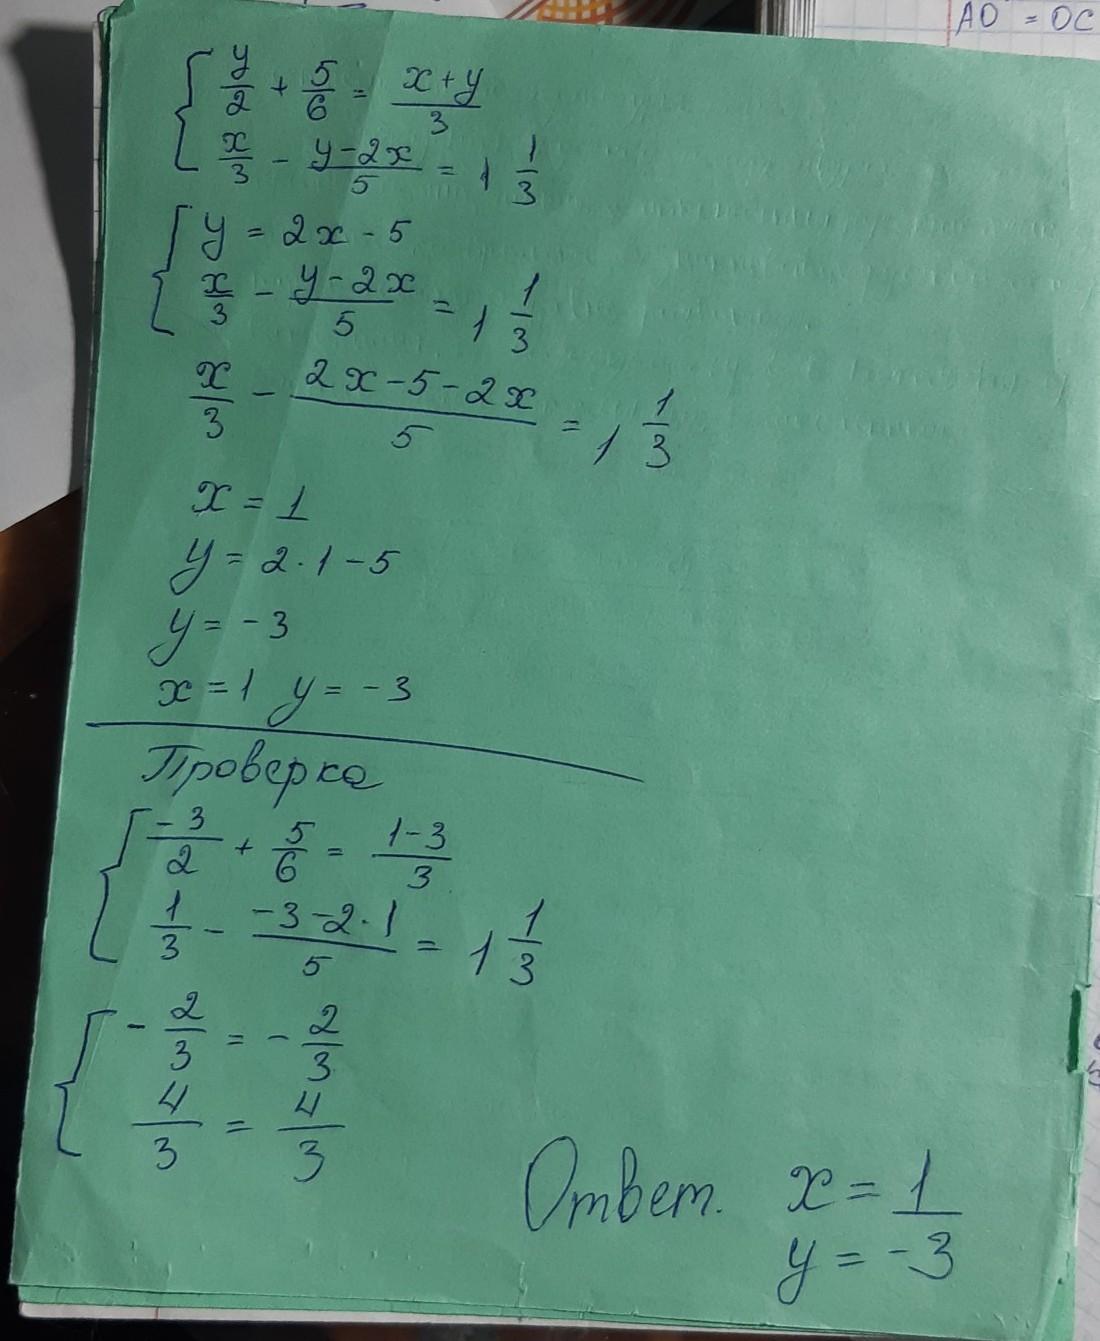 AO = OC
y/2 + 5/6 = x+y/3
x/3 - y-2x/5 = 1 1/3
y = 2x - 5
x/3 - y-2x/5 = 1 1/3
x/3 - 2x-5-2x/5 = 1 1/3
x = 1
y = 2·1-5
y = -3
x = 1 y = -3
Проверка
-3/2 + 5/6 = 1-3/3
1/3 - -3-2·1/5 = 1 1/3
-2/3 = -2/3
4/3 = 4/3
Ответ. x = 1
y = -3